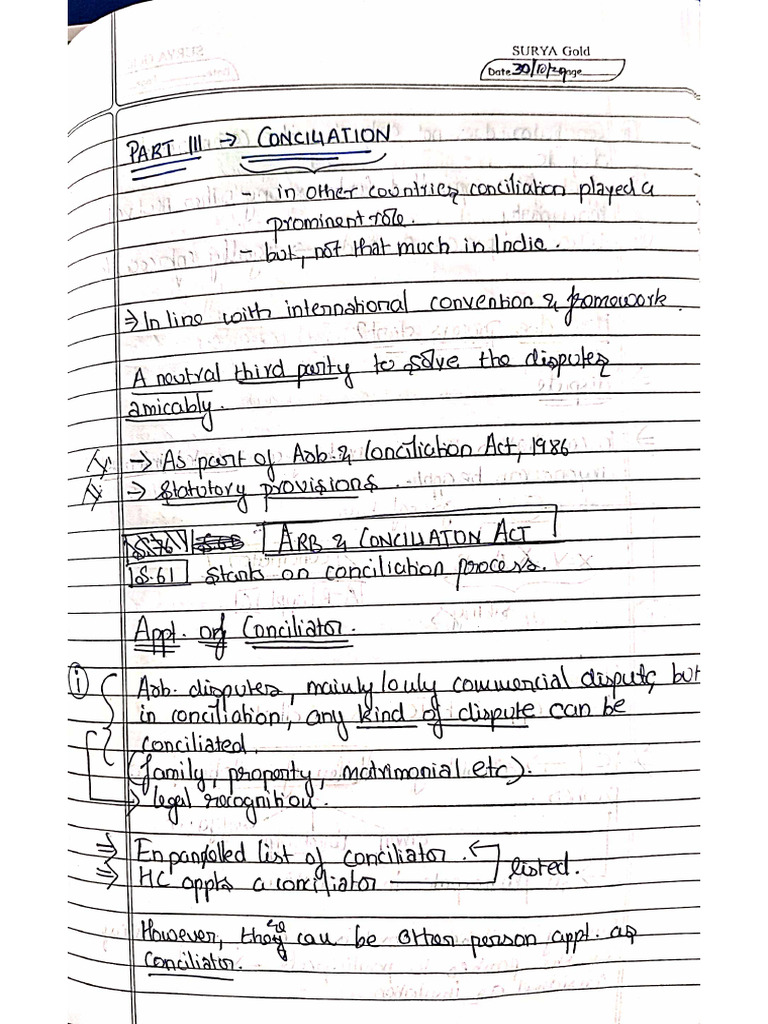 SURYA Gold
Date 30/10/20 Page
PART III → CONCILIATION
- in other countries conciliation played a
prominent role.
- but, not that much in India.
⇒ In line with international convention & framework.
A neutral third party to solve the disputes
amicably.
→ As part of Arb. & Conciliation Act, 1986
→ Statutory provisions.
S.76 ARB & CONCILIATON ACT
S.61 Starts on conciliation process.
Appt. of Conciliator.
(i) Arb. disputes, mainly/only commercial dispute, but
in conciliation, any kind of dispute can be
conciliated.
(family, property, matrimonial etc).
→ legal recognition.
⇒ Enpanelled list of conciliator.
⇒ HC appts a conciliator listed.
However, there can be other person appt. as
conciliator.